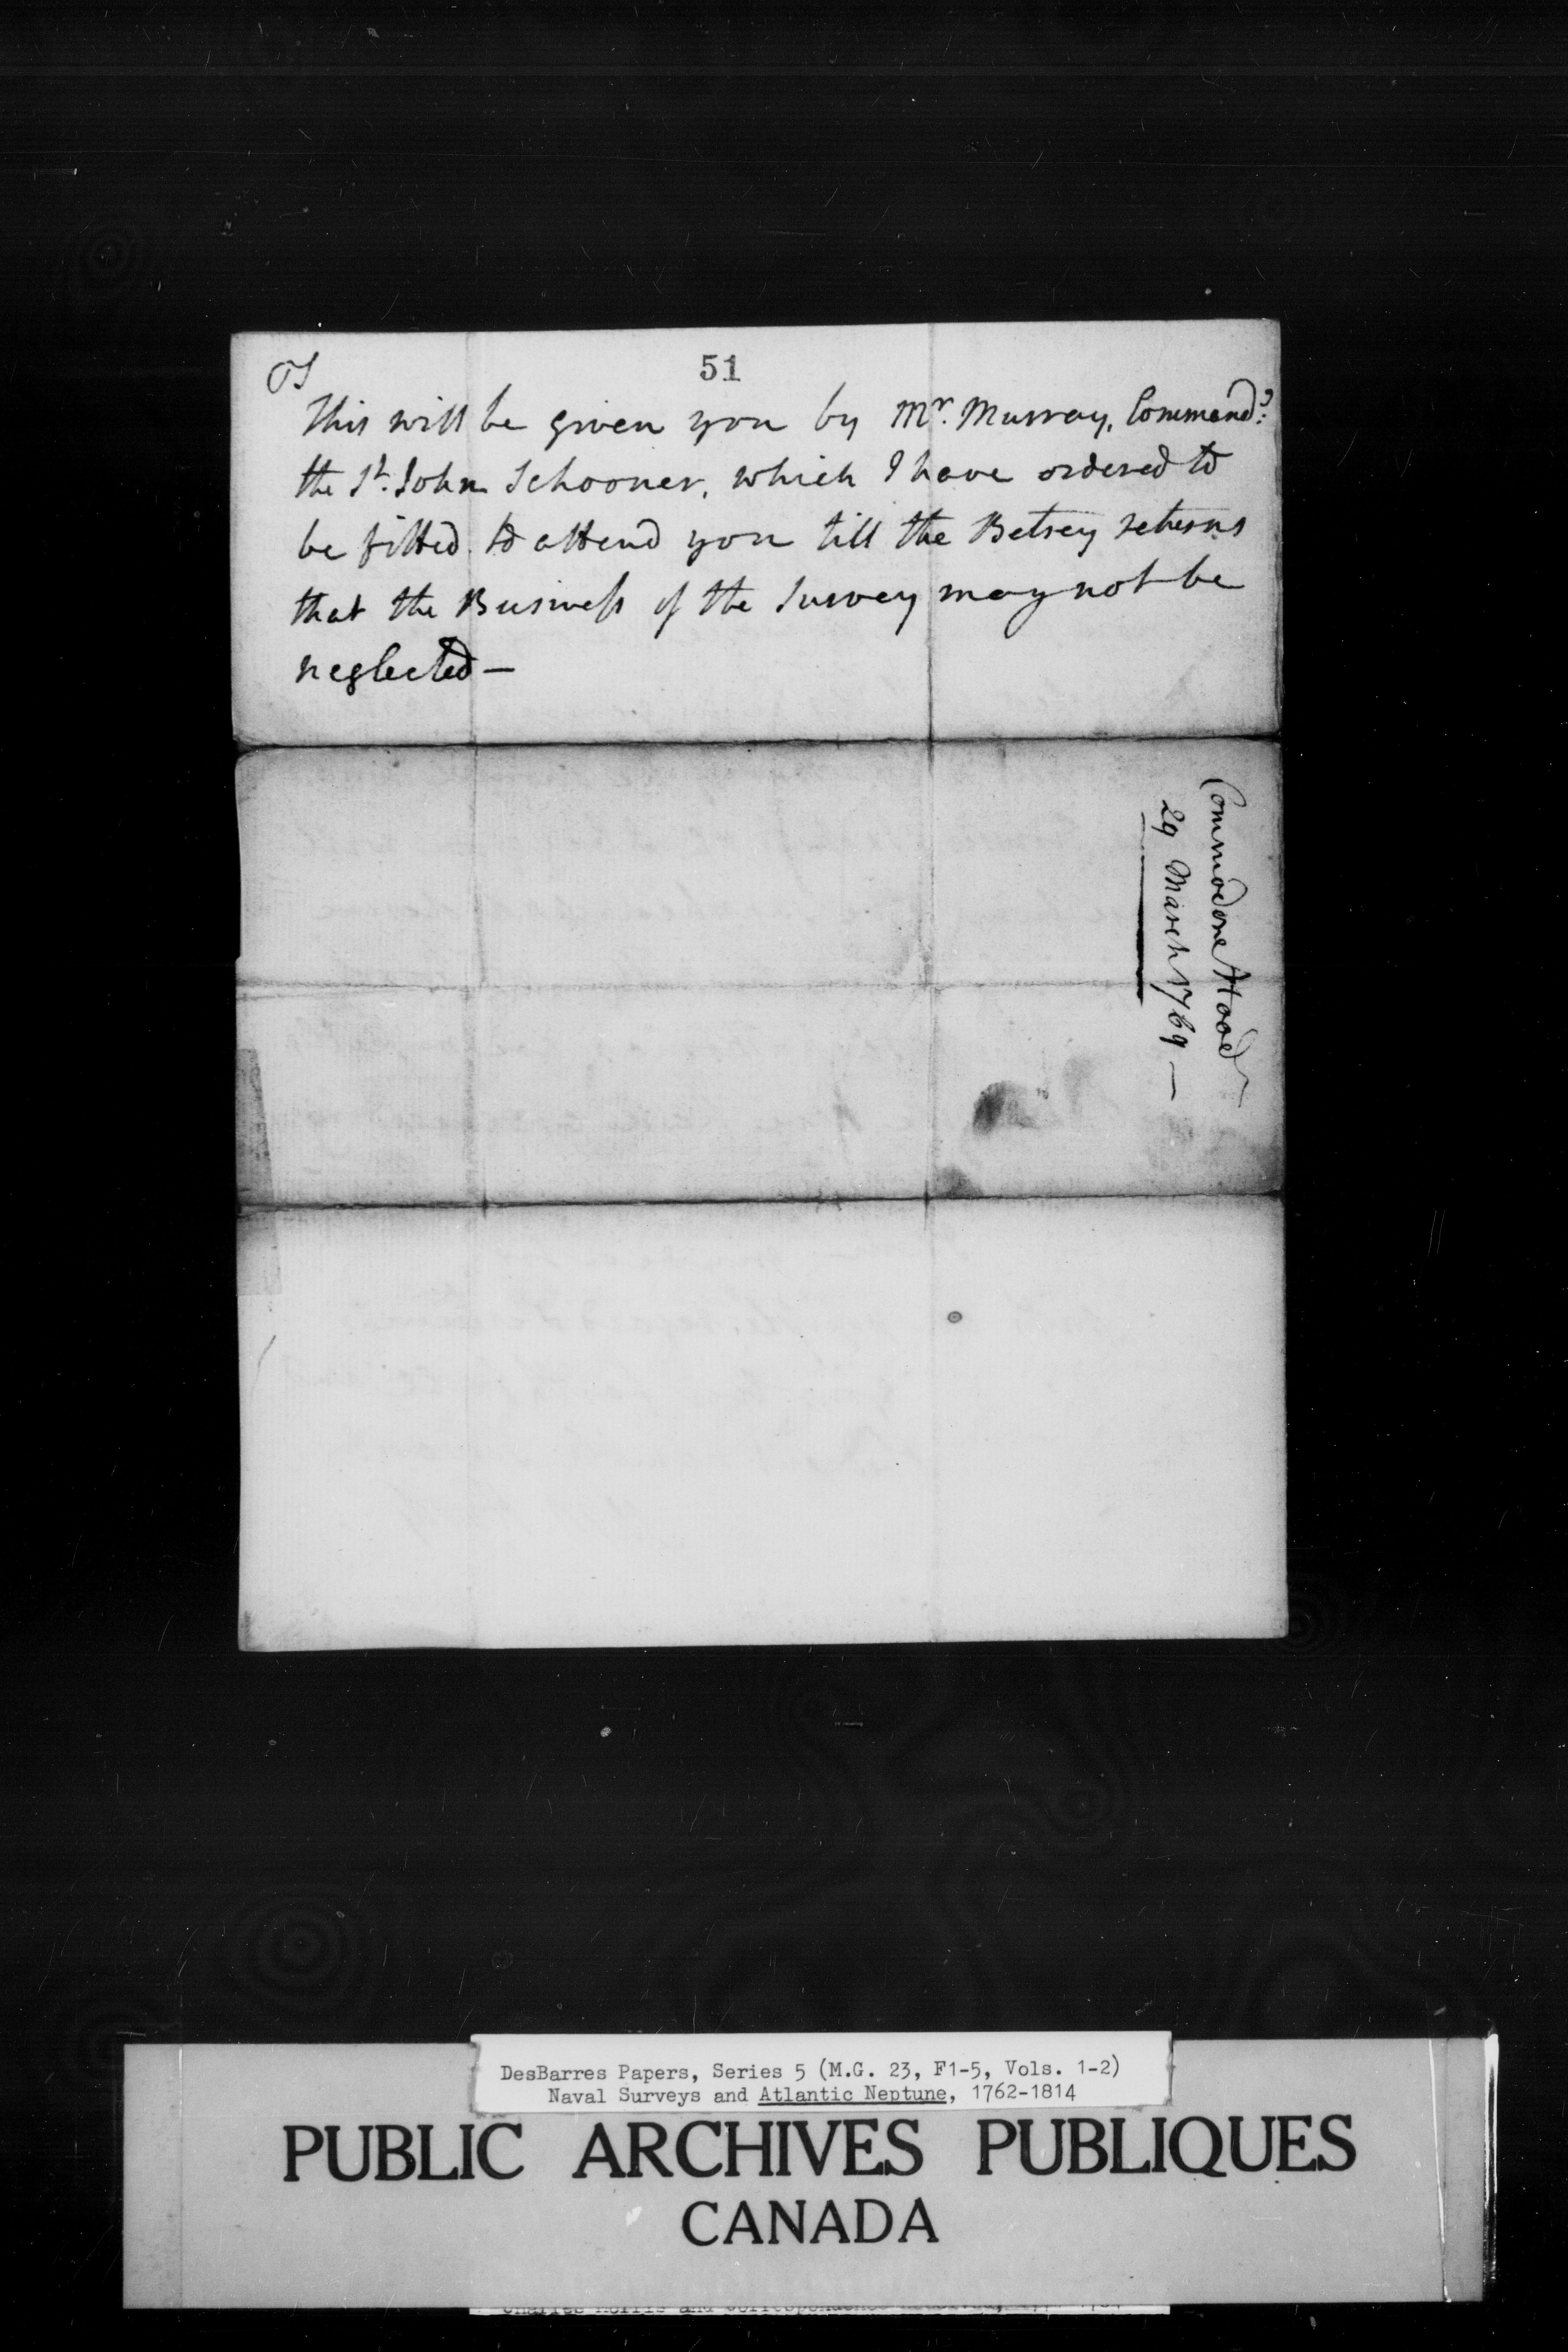 51
PS
This will be given you by Mr. Murray, Command.g
the St. John Schooner, which I have ordered to
be fitted to attend you till the Betsey returns
that the Business of the Survey may not be
neglected—
Commodore Hood
29 March 1769—
DesBarres Papers, Series 5 (M.G. 23, F1-5, Vols. 1-2)
Naval Surveys and Atlantic Neptune, 1762-1814
PUBLIC ARCHIVES PUBLIQUES
CANADA